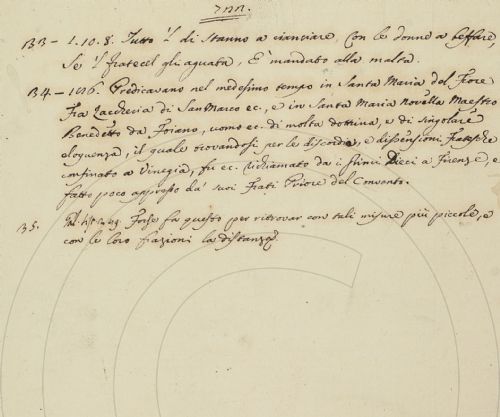 B3 – 1.10.8. Tutto 'l dì stanno a cianciare, Con le donne a beffare
Se 'l fratecel gli aguata, E' mandato alla malta.
B4 – Predicavano nel medesimo tempo in Santa Maria del Fiore
Fra Zaccheria di San Marco ec., e in Santa Maria Novella Maestro
Benedetto da Foiano, uomo ec. di molta dottrina, e di singolare
eloquenza, il quale trovandosi per le discordie, e dissensioni Fratesche
confinato a Vinegia, fu ec. richiamato da i Dieci a Firenze, e
fatto poco appresso de' suoi Frati Priore del Convento.
B5. Forse fu questo per ritrovar con tali misure più piccole, e
con le loro frazioni la distanza.